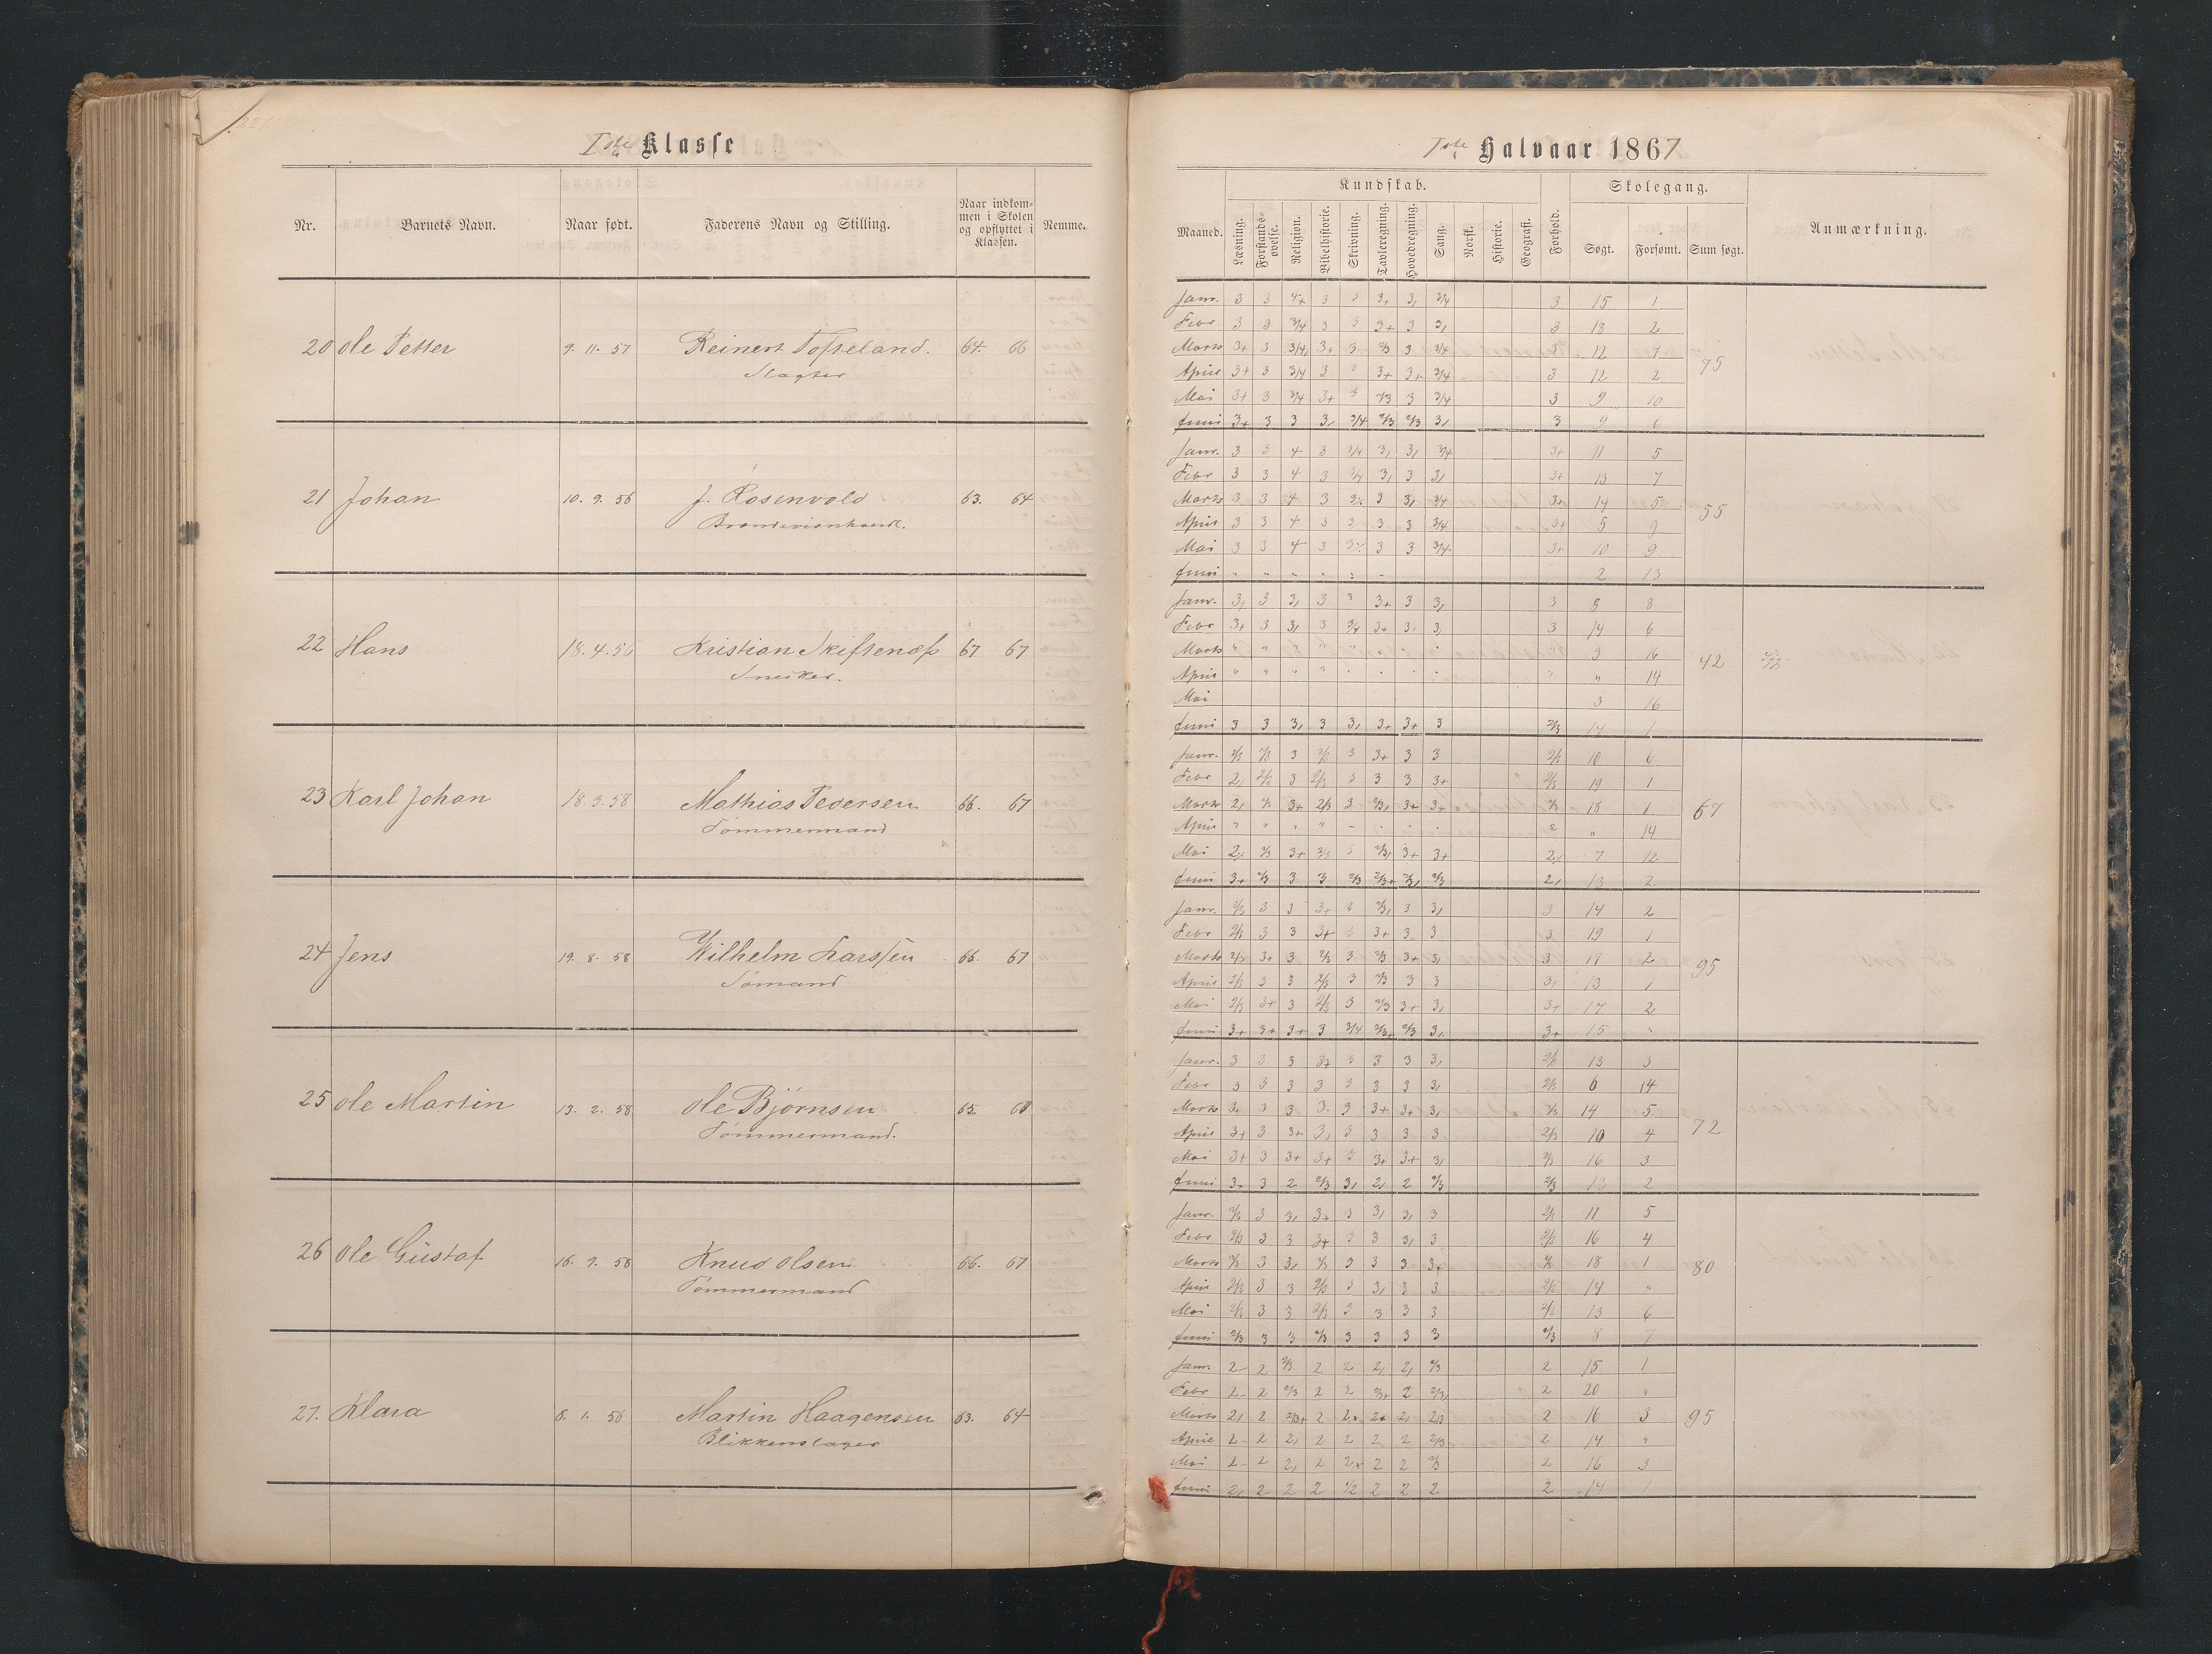 Iste Klasse
Nr. Barnets Navn. Naar født. Faderens Navn og Stilling. Naar indkommen i Skolen og opflyttet i Klassen. Nemme.
20 Ole Petter 9. 11. 57 Reinert Tofteland. 64. 66
Slagter
21 Johan 10. 9. 56 J. Rosenvold 63. 64
22 Hans 18. 4. 56 Kristian Skiftenæs 67 67
Snekker.
23 Karl Johan 18. 3. 58 Mathias Pedersen 66. 67
Tømmermand
24 Jens 19. 8. 58 Wilhelm Larssen 66. 67
Sømand
25 Ole Martin 13. 2. 58 Ole Bjørnsen 65.
Tømmermand.
26 Ole Güstaf 16. 9. 58 Knud Olsen 66. 67
Tømmermand
27. Klara 8. 1. 56 Martin Haagensen 63. 64
Blikkenslager
Iste Halvaar 1867
Kundskab. Skolegang.
Maaned. Læsning. Forstandsøvelse. Religion. Bibelhistorie. Skrivning. Tavleregning. Hovedregning. Sang. Norsk. Historie. Geografi. Forhold. Søgt. Forsømt. Sum søgt. Anmærkning.
Janr. 3 3 3 3 15 1
Febr 3 3 3/4 3 3 3+ 3 3, 3 13 2
Marts 3+ 3 3/4, 3+ 3 2/3 3 3/4 3 12 7
April 3+ 3 3/4 3 3 3+ 3+ 3/4 3 12 2
75
Mai 3+ 3 3/4 3+ 3 2/3 3 3/4 3 9 10
Juni 3+ 3 3 3, 3/4 2/3 2/3 3, 3 9 6
Janr. 3 3 4 3 3/4 3, 3, 3/4 3+ 11 5
Febr 3 3 4 3 3/4 3, 3 3, 3+ 13 7
Marts 3 3 4 3 3 3, 3/4 3+ 14 5
55
April 3 3 4 3 3 3 3 3/4 3+ 5 9
Mai 3 3 4 3 3 3 3/4 3+ 10 9
Juni 2 13
Janr. 3, 3 3, 3 3 3+ 3 3, 3 8 8
Febr 3+ 3 3, 3 3/4 3+ 3 3, 3 14 6
Marts " " " " " 3 16
42
April " " " " " " 14
Mai 3 16
Juni 3 3 3, 3 3, 3+ 3+ 3 2/3 14 1
Janr. 2/3 2/3 3 2/3 3 3+ 3 3 2/3 10 6
Febr 2, 2/3 3 2/3 3 3 3 3+ 2/3 19 1
Marts 2, 2/3 3+ 2/3 3 2/3, 3+ 3+ 2/3 18 1
67
April " " " " 2 " 14
Mai 2/3 3+ 2/3 3 2/3, 3+ 3+ 7 12
Juni 3+ 2/3 3 3 2/3 2/3+ 2/3, 2/3 2, 13 2
Janr. 2/3 3 3 3+ 3 2/3, 3 3, 3 14 2
Febr 2/3 3 3 3+ 3 3+ 3 3 3 19 1
Marts 2/3 3+ 3 2/3 3 2/3 3+ 3, 3 2
95
April 2/3 3 3 2/3 3 2/3 3 3 3+ 13 1
Mai 2/3 3+ 3 2/3 3 2/3 3+ 3, 3+ 17 2
Juni 3+ 3+ 3+ 3 3/4 2/3+ 2/3 3, 3+ 15 "
Janr. 3 3 3 3+ 3 3 3 3, 2/3 13 3
Febr 3 3 3 3 3 3 3 3, 2/3 6 14
Marts 3 3 3 3 3 3+ 3+ 3, 2/3 14 5
72
April 3+ 3 3+ 3, 3 3 3 3 2/3 10 4
Mai 3+ 3 3+ 3+ 3 3+ 3+ 3, 2/3 16 3
Juni 3+ 3 2 2/3 3, 2, 2 2/3 2/3 13 2
Janr. 2/3 3 3, 3+ 3 3, 3, 3 2/3 11 5
Febr 2/3 3 3 3+ 3 3 3, 3 2/3 16 4
Marts 2/3 3 3, 2/3 3 3 3 3+ 2/3 18 1
80
April 2/3 3 3 2/3 3 3, 3 3 2/3 14 "
Mai 2/3 3 3 2/3 3 3 3 3 2/3 13 6
Juni 2/3 3 3 2/3 3 3 3 3 2/3 8 7
Janr. 2 2 2/3 2 2 2, 2, 2/3 2 15 1
Febr 2 2 2/3 2 2 2/3+ 2 2/3, 2 20 "
Marts 2, 2 2/3+ 2 2+ 2+ 2, 2/3 2 16 3
95
April 2 2 2, 2 2 2 2 2/3 2 14 "
Mai 2 2 2, 2 2+ 2 2 2/3 2 16 3
Juni 2, 2 2 2 1/2 2 2 2 2 14 1